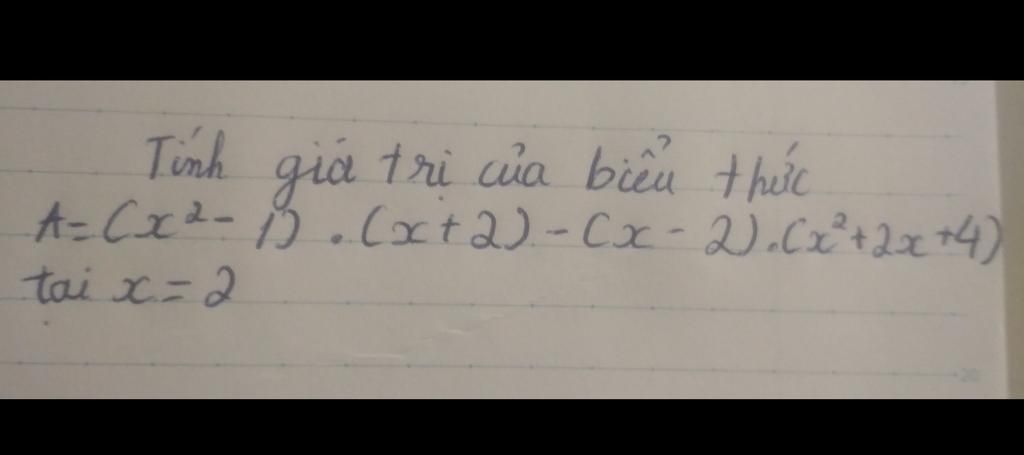 Tính giá trị của biểu thức
A = (x² - 1) . (x + 2) - (x - 2) . (x² + 2x + 4)
tại x = 2